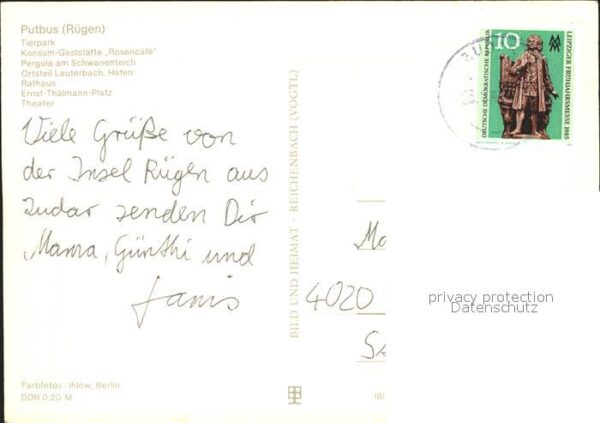 Putbus (Rügen)
Tierpark
Konsum-Gaststätte „Rosencafé"
Pergola am Schwanenteich
Ortsteil Lauterbach, Hafen
Rathaus
Ernst-Thälmann-Platz
Theater
10
DEUTSCHE DEMOKRATISCHE REPUBLIK
LEIPZIGER FRÜHJAHRSMESSE 1985
Viele Grüße von
der Insel Rügen aus
Zudar senden Dir
Mama, Günthi und
Janis
BILD UND HEIMAT - REICHENBACH (VOGTL)
Ma
4020
privacy protection
Datenschutz
Farbfotos: Ihlow, Berlin
DDR 0,20 M